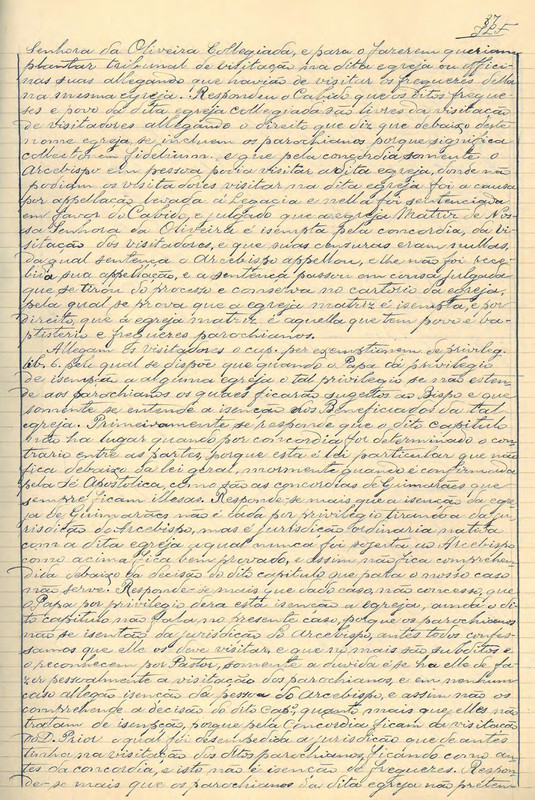 Senhora da Oliveira Collegiada, e para o fazerem queriam
plantar tribunal de visitação na dita egreja ou offici-
nas suas allegando que havião de visitar os freguezes della
na mesma egreja. Respondeu o Cabido que os ditos fregue-
ses e povo da dita egreja collegiada são livres da visitação
de visitadores allegando o direito que diz que debaixo deste
nome egreja se incluem os parochianos porque significa
collectionem fidelium, e que pela concordia somente o
Arcebispo em pessoa podia visitar a dita egreja, donde não
podiam os visitadores visitar na dita egreja foi a causa
por appellação levada á Legacia e nella foi sentenciada
em favor do Cabido, e julgado que a egreja Matriz de Nos-
sa Senhora da Oliveira é isempta pela concordia, da vi-
sitação dos visitadores, e que suas censuras eram nullas,
da qual sentença o Arcebispo appellou, e lhe não foi rece-
bida sua appellação, e a sentença passou em cousa julgada
que se tirou do processo e conserva no cartorio da egreja,
pela qual se prova que a egreja matriz é isempta, e por
direito, que a egreja matriz é aquella que tem povo e ba-
ptisterio e freguezes parochianos.
Allegam os visitadores o cap. per exemptionem de privileg.
lib. 6. pelo qual se dispoe que quando o Papa dá privilegio
de isempção a alguma egreja o tal privilegio se não esten-
de aos parochianos os quaes ficarão sugeitos ao Bispo e que
somente se entende a isenção nos Beneficiados da tal
egreja. Primeiramente se responde que o dito capitulo
não ha lugar quando por concordia foi determinado o con-
trario entre as partes, porque esta é lei particular que não
fica debaixo da lei geral, mormente quando é confirmada
pela Sé Apostolica, como são as concordias de Guimarães que
sempre ficam illesas. Responde-se mais que a isenção da egre-
ja de Guimarães não é dada por privilegio tirando-a da ju-
risdição do Arcebispo, mas é jurisdição ordinaria nata
com a dita egreja a qual nunca foi sojeita ao Arcebispo
como acima fica bem provado, e assim não fica comprehen-
dida debaixo da decisão do dito capitulo que para o nosso caso
não serve. Responde-se mais que dado caso, não concesso, que
o Papa por privilegio dera esta isenção a egreja, ainda o di-
to capitulo não fala no presente caso, porque os parochianos
não se isentão da jurisdição do Arcebispo, antes todos confes-
samos que elle os deve visitar, e que mais são subditos e
o reconhecem por Pastor, somente a duvida é se ha elle de fa-
zer pessoalmente a visitação dos parochianos, e em nenhum
caso allegão isenção da pessoa do Arcebispo, e assim não os
comprehende a decisão do dito Cap. quanto mais que elles não
tratam de isenção, porque pela Concordia ficam da visitação
do D. Prior o qual foi despedida a jurisdição que de antes
tinha na visitação dos ditos parochianos, ficando como an-
tes da concordia, e isto não é isenção de freguezes. Respon-
de-se mais que os parochianos da dita egreja não preten-